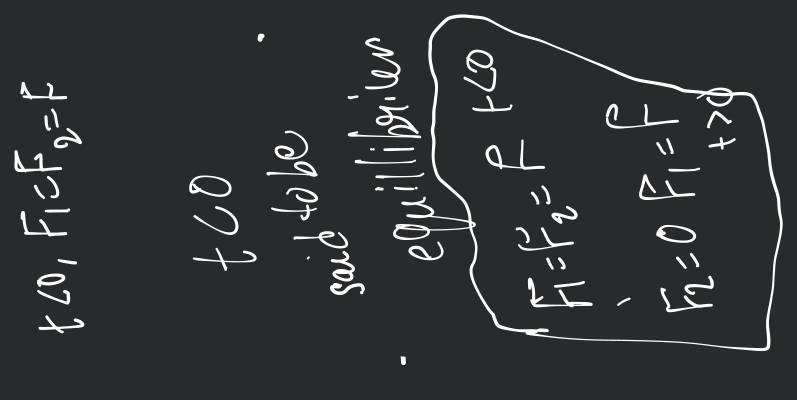 t<0, F1=F2=F
t<0
said to be
equillibrier
F1=F2=F t<0
F2=0 F1=F t>0